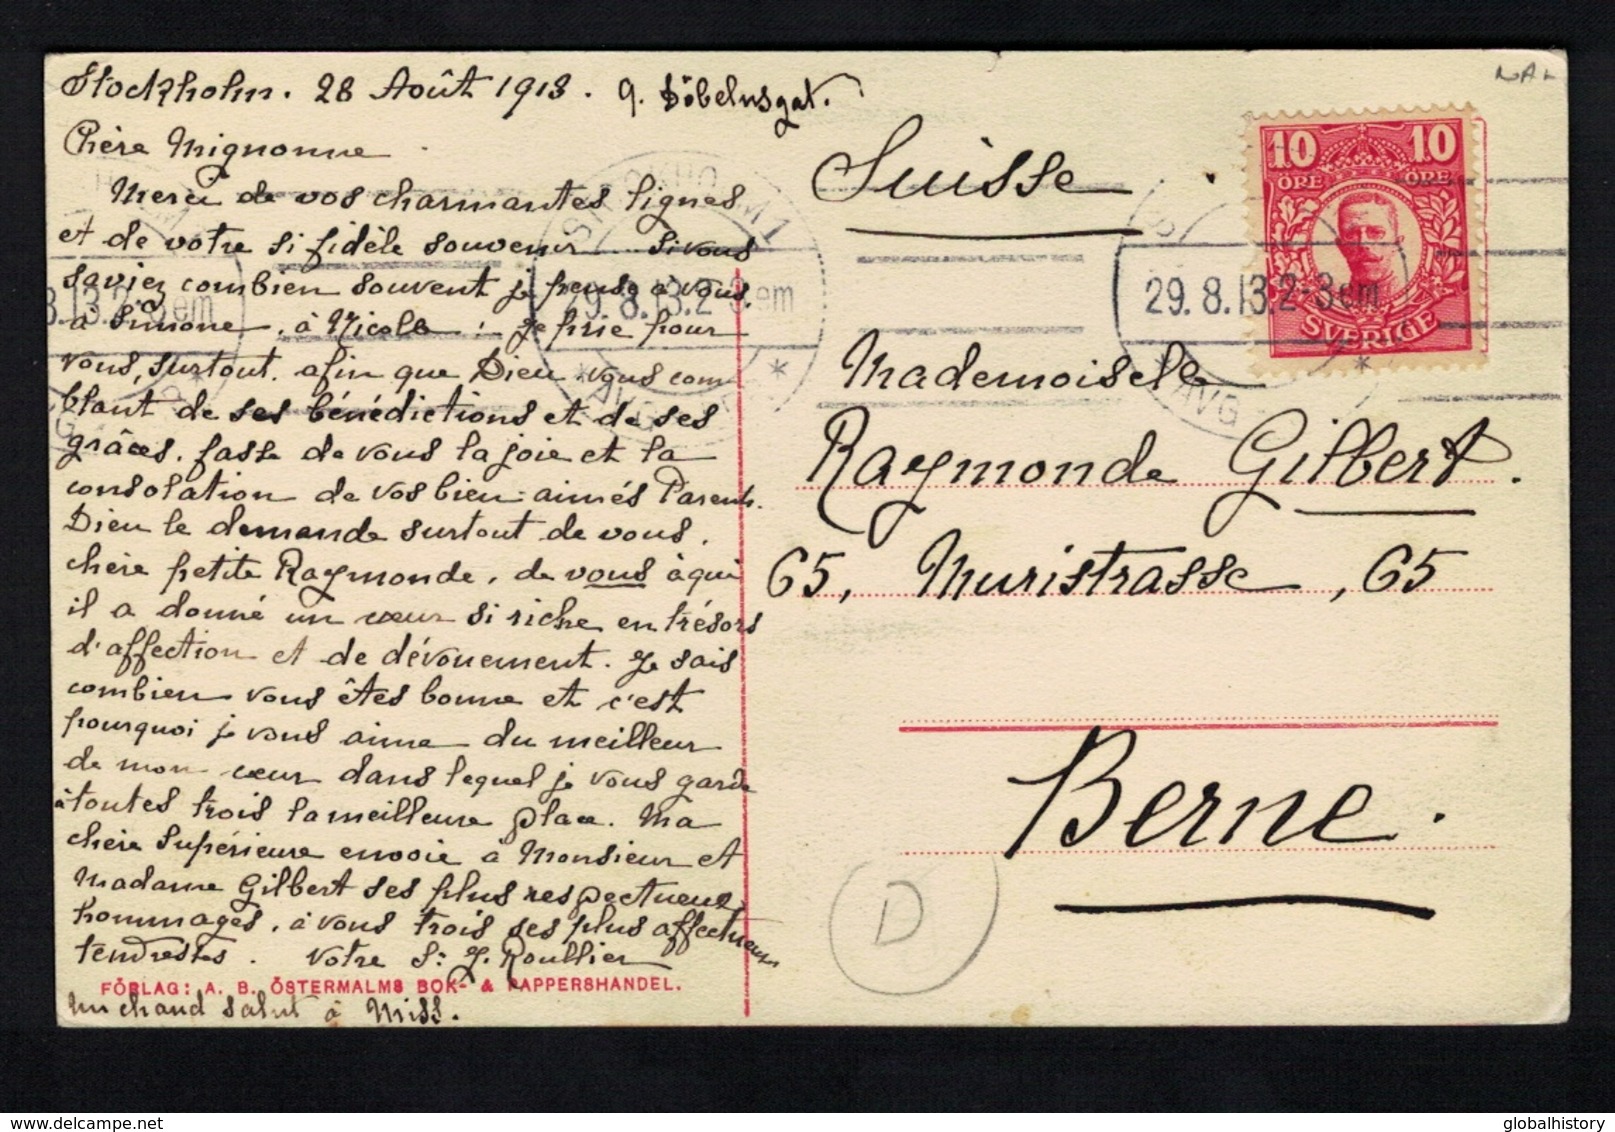 Stockholm. 28 Août 1913. 9. Döbelnsgat.
Chère Mignonne
Merci de vos charmantes lignes
et de votre si fidèle souvenir si vous
saviez combien souvent je pense à vous,
à Simone, à Nicole ; je prie pour
vous, surtout, afin que Dieu vous com
blant de ses bénédictions et de ses
grâces, fasse de vous la joie et la
consolation de vos bien-aimés Parents.
Dieu le demande surtout de vous,
chère petite Raymonde, de vous à qui
il a donné un cœur si riche en trésors
d'affection et de dévouement. Je sais
combien vous êtes bonne et c'est
pourquoi je vous aime du meilleur
de mon cœur dans lequel je vous garde
à toutes trois la meilleure place. Ma
chère Supérieure envoie à Monsieur et
Madame Gilbert ses plus respectueux
hommages, à vous trois ses plus affectueuses
tendresses. Votre Sr J. Roullier
FÖRLAG: A. B. ÖSTERMALMS BOK- & PAPPERSHANDEL.
Un chaud salut à Miss.
NAL
Suisse
10 10
ÖRE ÖRE
SVERIGE
STOCKHOLM 1
29.8.13.2-3em
AVG
29.8.13.2-3em
AVG
8.13.2-3em
Mademoiselle
Raymonde Gilbert.
65, Muristrasse, 65
Berne.
D
globalhistory